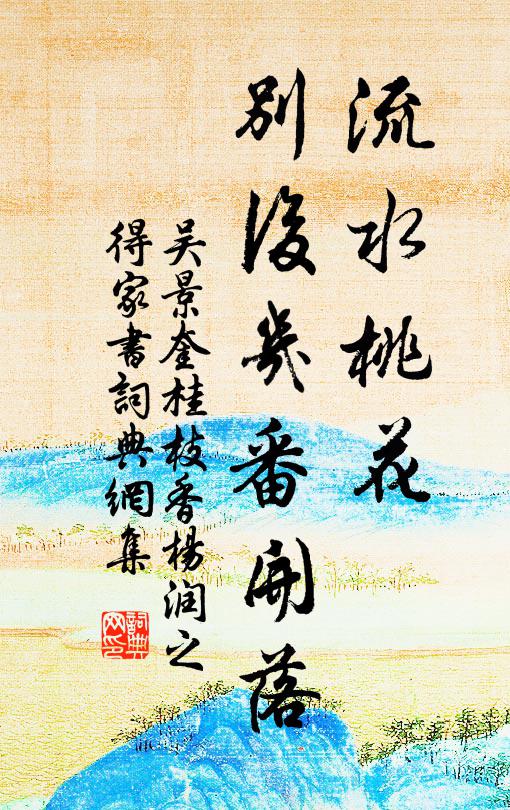 流水桃花
別後幾番開落
吴景奎桂枝香楊润之
得家書詞典網集
詞典
网印